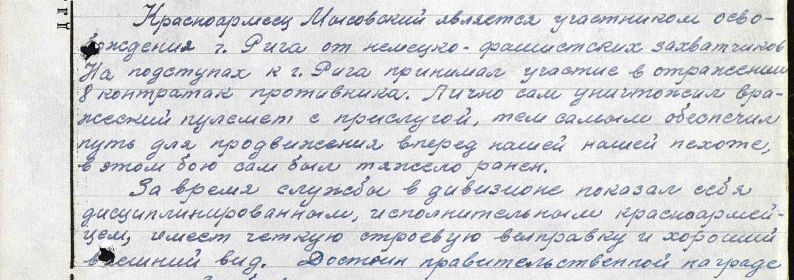 Красноармеец Мысовский является участником осво-
бождения г. Рига от немецко-фашистских захватчиков
На подступах к г. Рига принимал участие в отражении
8 контратак противника. Лично сам уничтожил вра-
жеский пулемет с прислугой, тем самым обеспечил
путь для продвижения вперед нашей нашей пехоте,
в этом бою сам был тяжело ранен.
За время службы в дивизионе показал себя
дисциплинированным, исполнительным красноармей-
цем, имеет четкую строевую выправку и хороший
внешний вид. Достоин правительственной награде